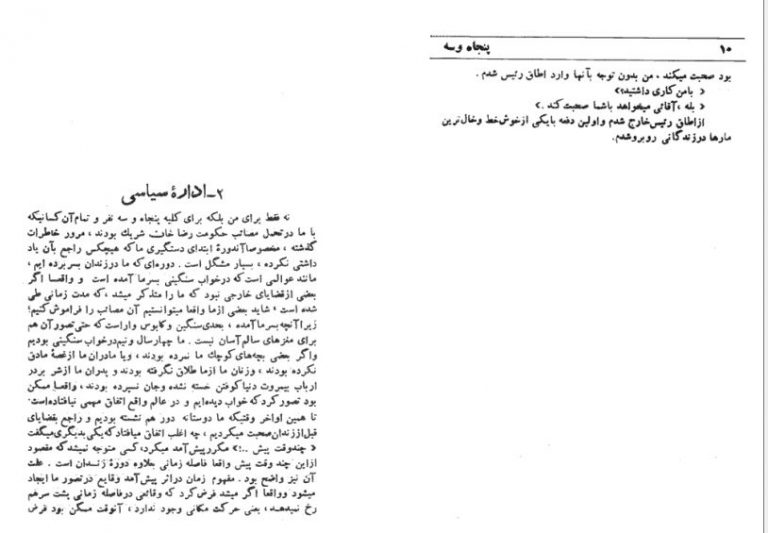 ۱۰ پنجاه وسه
بود صحبت میکند ، من بدون توجه بآنها وارد اطاق رئیس شدم .
< بامن کاری داشتید؟>
< بله ،آقائی میخواهد باشما صحبت کند .>
ازاطاق رئیس خارج شدم واولین دفعه بایکی ازخوش خط وخال ترین
مارها درزندگانی روبروشدم.
۲ـ ادارهٔ سیاسی
نه فقط برای من بلکه برای کلیه پنجاه و سه نفر و تمام آن کسانیکه
با ما درتحمل مصائب حکومت رضا خان شریک بودند ، مرور خاطرات
گذشته ، مخصوصاآندورهٔ ابتدای دستگیری ماکه هیچکس راجع بآن یاد
داشتی نکرده ، بسیار مشگل است . دوره‌ای که ما درزندان بسربرده ایم ،
مانند عوالمی است که درخواب سنگینی بسرما آمده است و واقعا اگر
بعضی ازقضایای خارجی نبود که ما را متذکر میشد ،که مدت زمانی طی
شده است ، شاید بعضی ازما واقعا میتوانستیم آن مصائب را فراموش کنیم؛
زیراآنچه بسرما آمده ، بحدی سنگین وکابوس واراست که حتی تصورآن هم
برای مغزهای سالم آسان نیست . ما چهارسال ونیم درخواب سنگینی بودیم
واگر بعضی بچه‌های کوچک ما نمرده بودند ، ویا مادران ما ازغصهٔ مادق
نکرده بودند ، وزنان ما ازما طلاق نگرفته بودند و پدران ما ازشر بردر
ارباب بیمروت دنیا کوفتن خسته نشده وجان نسپرده بودند ، واقعا ممکن
بود تصورکردکه خواب دیده‌ایم و در عالم واقع اتفاق مهمی نیافتاده‌است.
تا همین اواخر وقتیکه ما دوستانه دور هم نشسته بودیم و راجع بقضایای
قبل اززندان صحبت میکردیم ، چه اغلب اتفاق میافتادکه یکی بدیگری میگفت
< چندوقت پیش ..؛> مکررپیش آمد میکرد،کسی متوجه نمیشدکه مقصود
ازاین چند وقت پیش واقعا فاصله زمانی بعلاوه دورهٔ زندان است . علت
آن نیز واضح بود . مفهوم زمان دراثر پیش آمد وقایع درتصور ما ایجاد
میشود وواقعا اگر میشد فرض کرد که وقائعی درفاصله زمانی پشت سرهم
رخ نمیدهد ، یعنی حرکت مکانی وجود ندارد ، آنوقت ممکن بود فرض